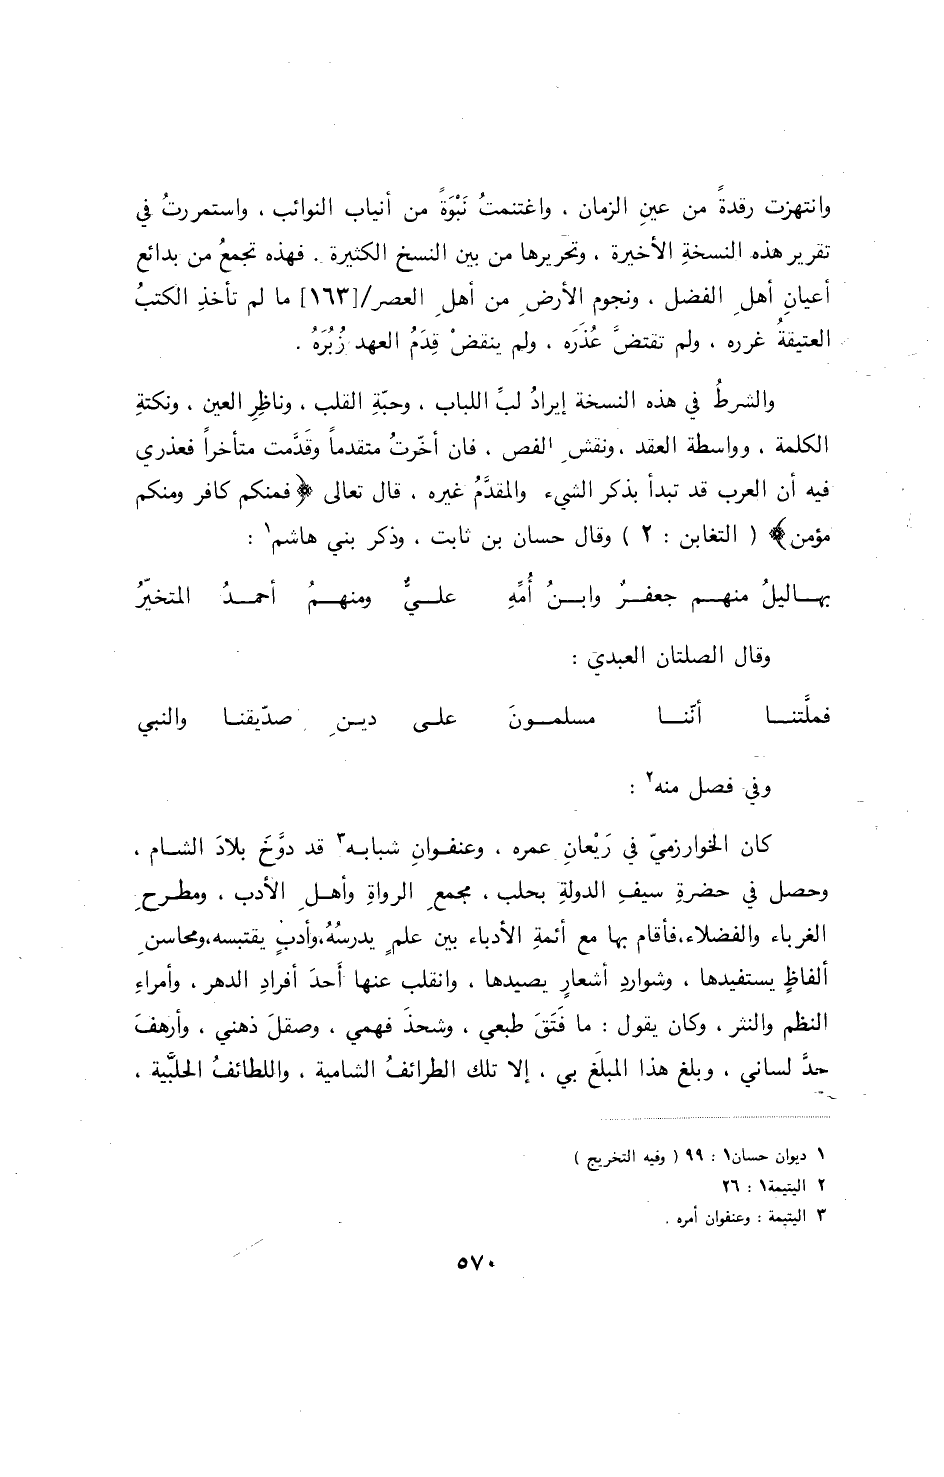 وانتهزت رقدةً من عينِ الزمان ، واغتنمتُ نَبْوَةً من أنياب النوائب ، واستمررتُ في
تقرير هذه النسخةِ الأخيرة ، وتحريرها من بين النسخ الكثيرة . فهذه تجمعُ من بدائع
أعيانِ أهلِ الفضل ، ونجوم الأرضِ من أهلِ العصر/[١٦٣] ما لم تأخذِ الكتبُ
العتيقةُ غرره ، ولم تقتضَّ عُذَرَه ، ولم ينقضْ قِدَمُ العهد زُبُرَهُ .
والشرطُ في هذه النسخة إيرادُ لبِّ اللباب ، وحبّةِ القلب ، وناظِرِ العين ، ونكتةِ
الكلمة ، وواسطة العقد ، ونقشِ الفص ، فان أخّرتُ متقدماً وقَدَّمت متأخراً فعذري
فيه أن العرب قد تبدأ بذكر الشيء والمقدَّمُ غيره ، قال تعالى ﴿فمنكم كافر ومنكم
مؤمن﴾ ( التغابن : ٢ ) وقال حسان بن ثابت ، وذكر بني هاشم١ :
بهـاليلُ منهـم جعفـرٌ وابـنُ أُمِّهِ علـيٌّ ومنهـمُ أحمـدُ المتخيَّرُ
وقال الصلتان العبدي :
فملَّتنـا أنّنـا مسلمـونَ على ديـنِ صدّيقنـا والنبي
وفي فصل منه٢ :
كان الخوارزميّ في رَيْعانِ عمره ، وعنفـوانِ شبابـه٣ قد دوَّخَ بلادَ الشـام ،
وحصل في حضرةِ سيفِ الدولةِ بحلب ، مجمعِ الرواةِ وأهـلِ الأدب ، ومطـرحِ
الغرباء والفضلاء،فأقام بها مع أئمةِ الأدباء بين علمٍ يدرسُهُ،وأدبٍ يقتبسه،ومحاسنِ
ألفاظٍ يستفيدها ، وشواردِ أشعارٍ يصيدها ، وانقلب عنها أَحدَ أفرادِ الدهر ، وأمراءِ
النظم والنثر ، وكان يقول : ما فَتَقَ طبعي ، وشحذَ فهمي ، وصقلَ ذهني ، وأرهفَ
حدَّ لساني ، وبلغ هذا المبلغَ بي ، إلا تلك الطرائفُ الشامية ، واللطائفُ الحلبَّية ،
١ ديوان حسان١ : ٩٩ ( وفيه التخريج )
٢ اليتيمة١ : ٢٦
٣ اليتيمة : وعنفوان أمره .
٥٧٠